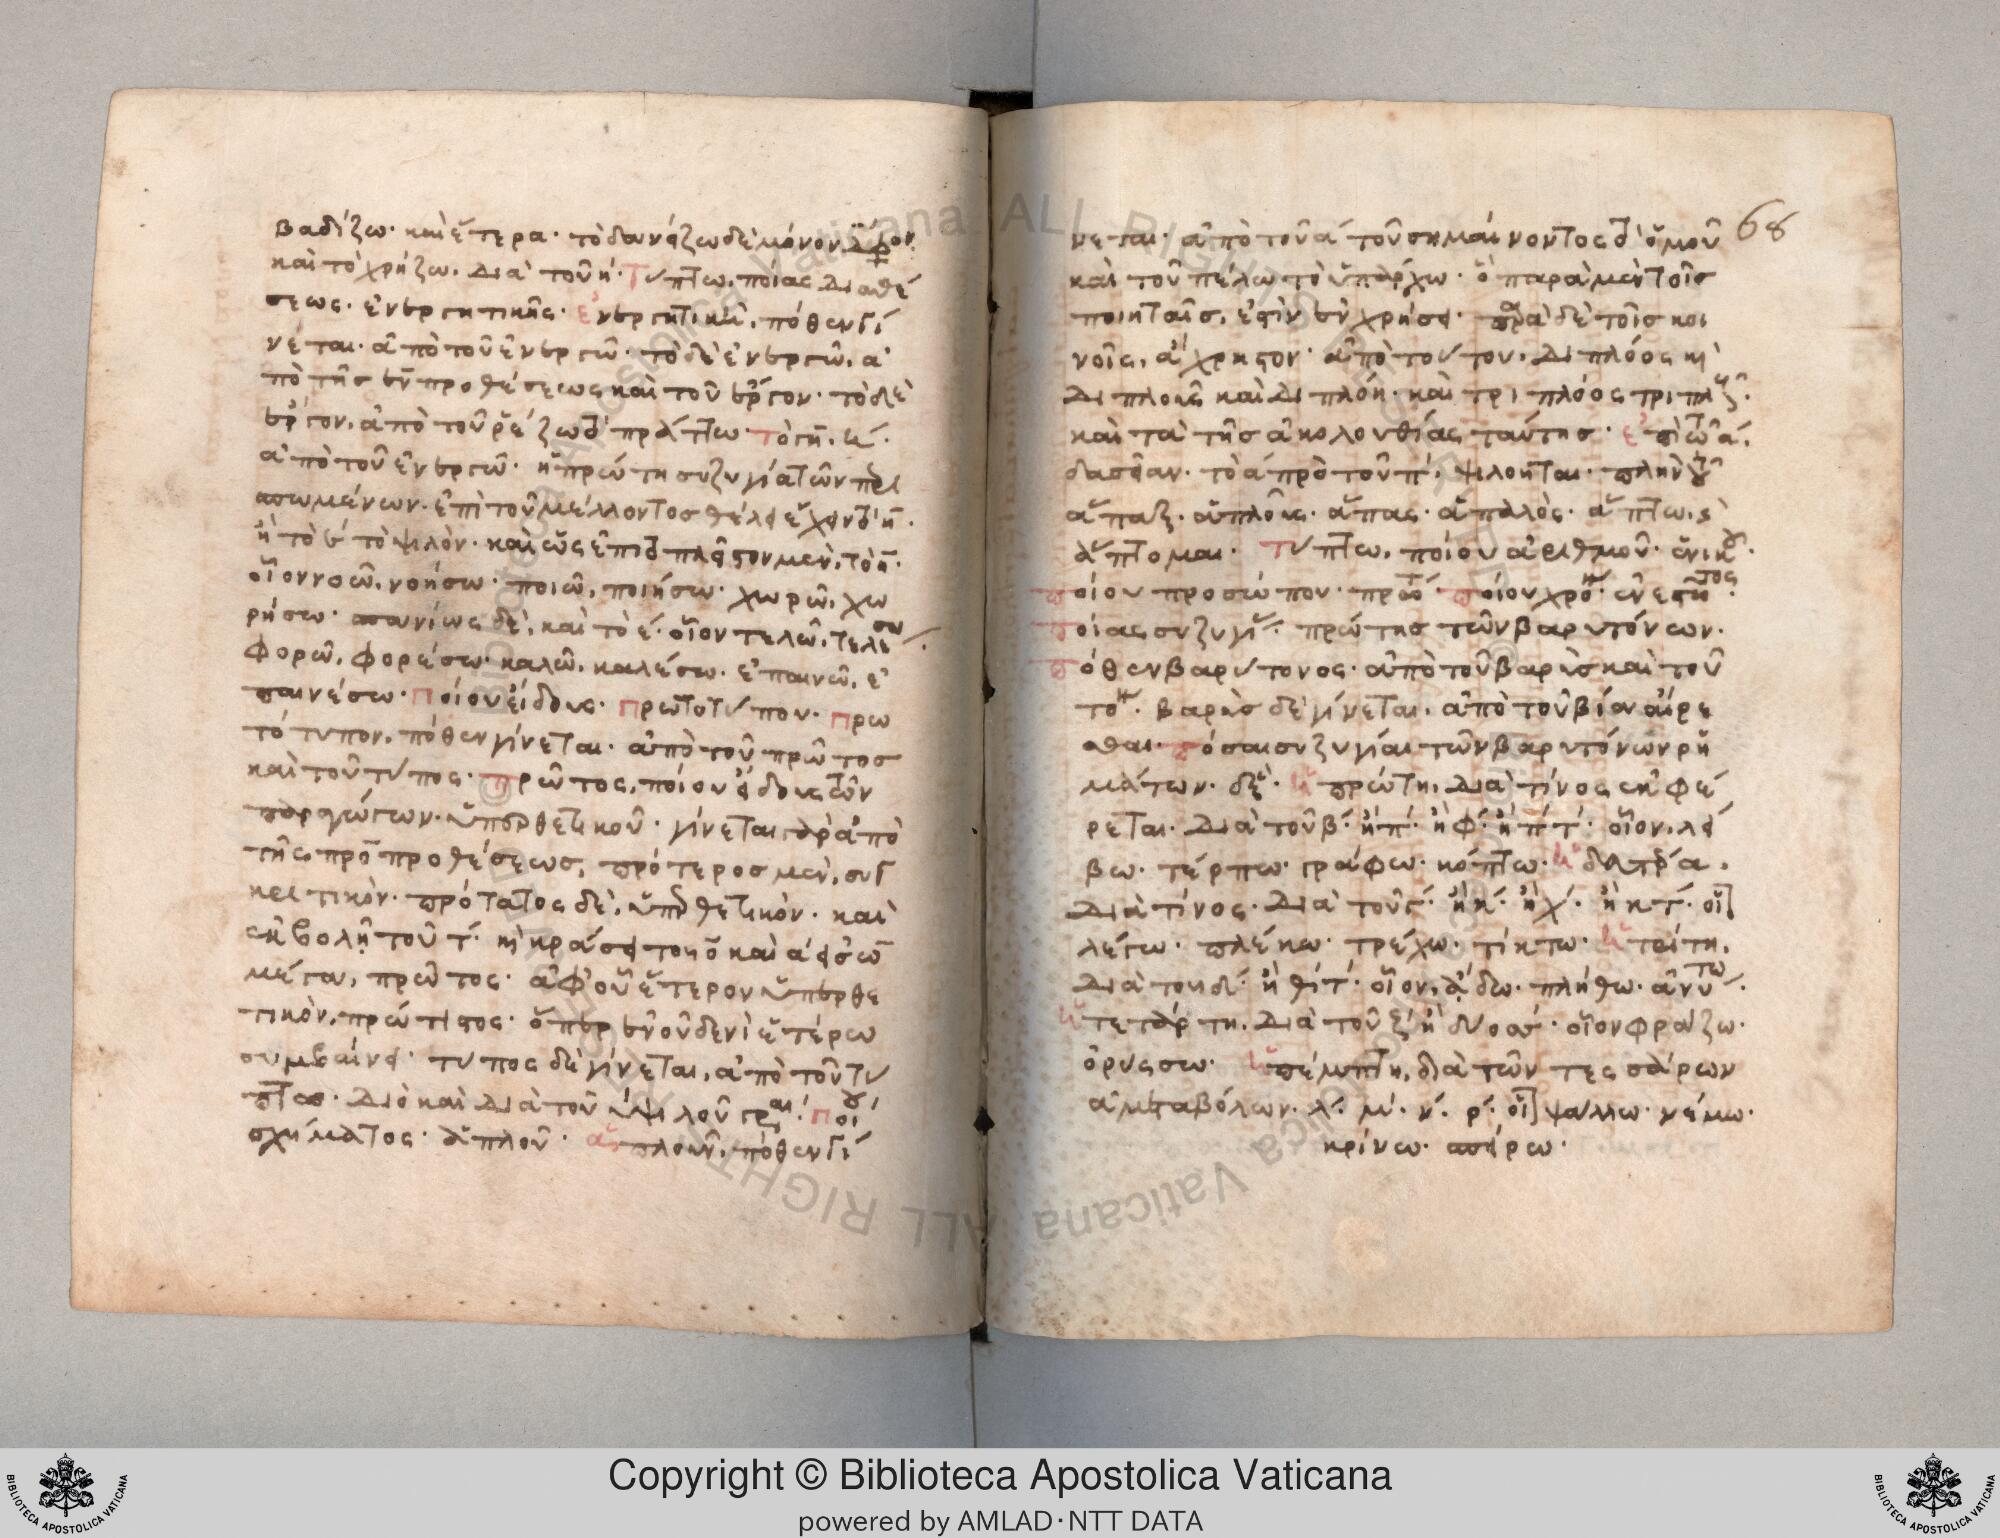 βαδίζω· καὶ ἕτερα· τὸ δανείζω δὲ μόνον
καὶ τὸ χρήζω. διὰ τοῦ η· Τύπτω, ποίας διαθέ
σεως· ἐνεργητικῆς· ἐνεργητικὴ, πόθεν γί
νεται· ἀπὸ τοῦ ἐνεργῶ· τὸ δὲ ἐνεργῶ, ἀ
πὸ τῆς ἐν προθέσεως καὶ τοῦ ἔργον· τὸ δὲ
ἔργον, ἀπὸ τοῦ ῥέζω πράττω·
ἀπὸ τοῦ ἐνεργῶ· ἡ πρώτη συζυγία τῶν περι
σπωμένων· ἐπὶ τοῦ μέλλοντος θέλει ἔχειν
ἢ τὸ ε τὸ ψιλὸν· καὶ ὡς ἐπὶ πλεῖστον μὲν, τὸ η·
οἷον νοῶ, νοήσω· ποιῶ, ποιήσω· χωρῶ, χω
ρήσω· σπανίως δὲ, καὶ τὸ ε· οἷον τελῶ, τελέσω·
φορῶ, φορέσω· καλῶ, καλέσω· ἐπαινῶ, ἐ
παινέσω· Ποίου εἴδους· Πρωτοτύπου· Πρω
τότυπον, πόθεν γίνεται· ἀπὸ τοῦ πρῶτος
καὶ τοῦ τύπος· Πρῶτος, ποίου εἴδους τῶν
παραγώγων· ὑπερθετικοῦ· γίνεται παρὰ ἀπὸ
τῆς πρὸ προθέσεως, πρότερος μὲν, συγ
κριτικὸν· πρότατος δὲ, ὑπερθετικὸν· καὶ
ἐκβολῇ τοῦ τ· καὶ κράσει τοῦ ο καὶ α εἰς ω
μέγα, πρῶτος· ἀφ' οὗ ἕτερον ὑπερθε
τικὸν, πρώτιστος· ὅπερ ἐν οὐδενὶ ἑτέρω
συμβαίνει· τύπος δὲ γίνεται, ἀπὸ τοῦ τύ
πτω· διὸ καὶ διὰ τοῦ υ ψιλοῦ γρ· Ποίου
σχήματος· ἁπλοῦ· ἁπλοῦν, πόθεν γί
68
νεται· ἀπὸ τοῦ α τοῦ σημαίνοντος ὁμοῦ
καὶ τοῦ πέλω τὸ ὑπάρχω· ὃ παρὰ μὲν τοῖς
ποιηταῖς, ἐστὶν ἐν χρήσει· παρὰ δὲ τοῖς κοι
νοῖς, ἄχρηστον· ἀπὸ τούτου, διπλόος καὶ
διπλοῦς καὶ διπλόη· καὶ τριπλόος τριπλοῦς·
καὶ τὰ τῆς ἀκολουθίας ταύτης·
δασεῖαν· τὸ α πρὸ τοῦ π, ψιλοῦται· πλὴν τοῦ
ἅπαξ· ἁπλοῦς· ἅπας· ἁπαλὸς· ἅπτω, καὶ
ἅπτομαι· Τύπτω, ποίου ἀριθμοῦ· ἑνικοῦ·
Ποίου προσώπου· πρώτου· Ποίου χρόνου· ἐνεστῶτος·
Ποίας συζυγίας· πρώτης τῶν βαρυτόνων·
Πόθεν βαρύτονος· ἀπὸ τοῦ βαρὺς καὶ τοῦ
τόνος· βαρὺς δὲ γίνεται, ἀπὸ τοῦ βίαν αἴρε
σθαι· Πόσαι συζυγίαι τῶν βαρυτόνων ῥη
μάτων· ἕξ· ἡ πρώτη, διὰ τίνος ἐκφέ
ρεται· διὰ τοῦ β· ἢ π· ἢ φ· ἢ πτ· οἷον, λεί
βω· τέρπω· γράφω· κόπτω· ἡ δευτέρα,
διὰ τίνος· διὰ τοῦ γ· ἢ κ· ἢ χ· ἢ κτ· οἷον
λέγω· πλέκω· τρέχω· τίκτω· ἡ τρίτη,
διὰ τοῦ δ· ἢ θ ἢ τ· οἷον, ᾄδω· πλήθω· ἀνύτω·
ἡ τετάρτη, διὰ τοῦ ζ ἢ δύο σσ· οἷον φράζω·
ὀρύσσω· ἡ πέμπτη, διὰ τῶν τεσσάρων
ἀμεταβόλων· λ· μ· ν· ρ· οἷον ψάλλω· νέμω·
κρίνω· σπείρω·
Copyright © Biblioteca Apostolica Vaticana
powered by AMLAD·NTT DATA